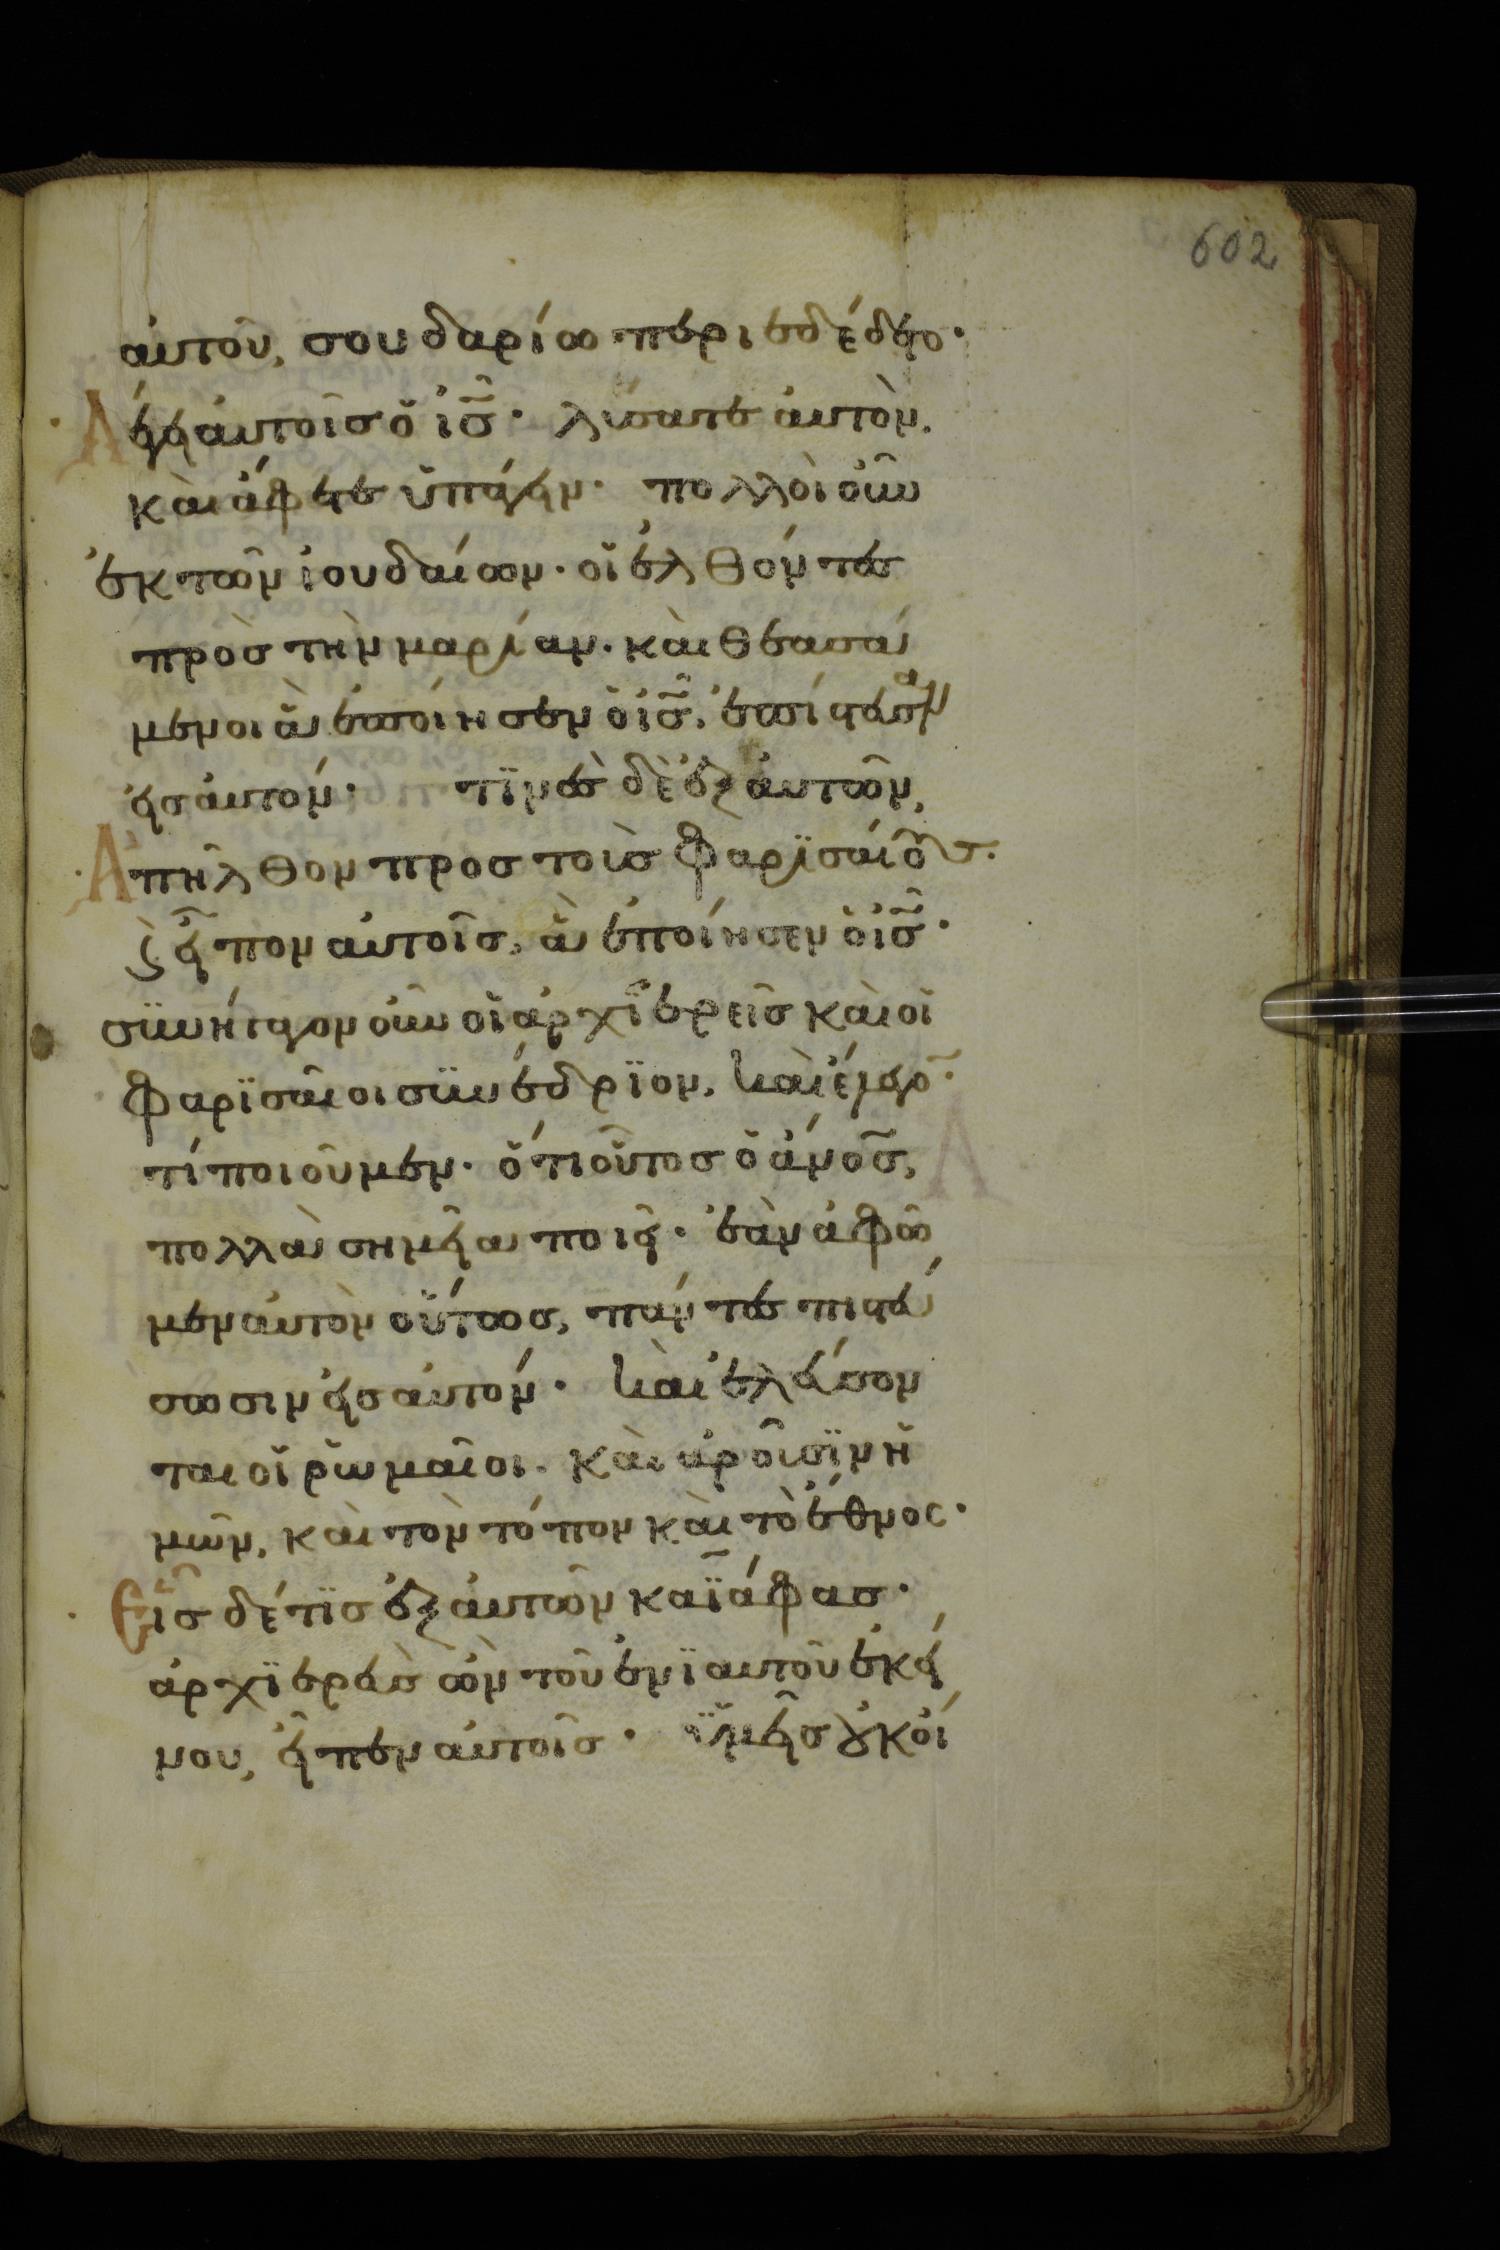 602
αὐτοῦ, σουδαρίω περιεδέδετο·
Λέγει αὐτοῖσ ὁ ἰ̅σ̅· λύσατε αὐτὸν,
καὶ ἄφετε ὑπάγειν· πολλοὶ οὖν
ἐκ τῶν ἰουδαίων· οἱ ἐλθόντεσ
πρὸσ τὴν μαρίαν· καὶ θεασά
μενοι ἃ ἐποίησεν ὁ ἰ̅σ̅, ἐπίστευσαν
εἰσ αὐτόν· τϊνὲσ δὲ ἐξ αὐτῶν,
Ἀπῆλθον προσ τοὺσ φαρϊσαίουσ·
ϗ εἶπον αὐτοῖσ, ἃ ἐποίησεν ὁ ἰ̅σ̅·
σϋνήγαγον οὖν οἱ ἀρχϊερεῖσ καὶ οἱ
φαρϊσαῖοι σϋνέδρϊον, καὶ ἔλεγο̅·
τί ποιοῦμεν· ὅτι οὗτοσ ὁ ἄν̅ο̅σ̅,
πολλὰ σημεῖα ποιεῖ· ἐὰν ἀφῶ
μεν αὐτὸν οὕτωσ, πάντεσ πιστεύ
σωσιν εἰσ αὐτόν· καὶ ἐλεύσον
ται οἱ ῥωμαῖοι· καὶ ἀροῦσϊν ἡ
μῶν, καὶ τὸν τόπον καὶ τὸ ἔθνοσ·
Εἷσ δέ τϊσ ἐξ αὐτῶν καϊάφασ·
ἀρχϊερεὺσ ὢν τοῦ ἐνϊαυτοῦ ἐκεί
νου, εἶπεν αὐτοῖσ· ὑμεῖσ οὐκ οἴ